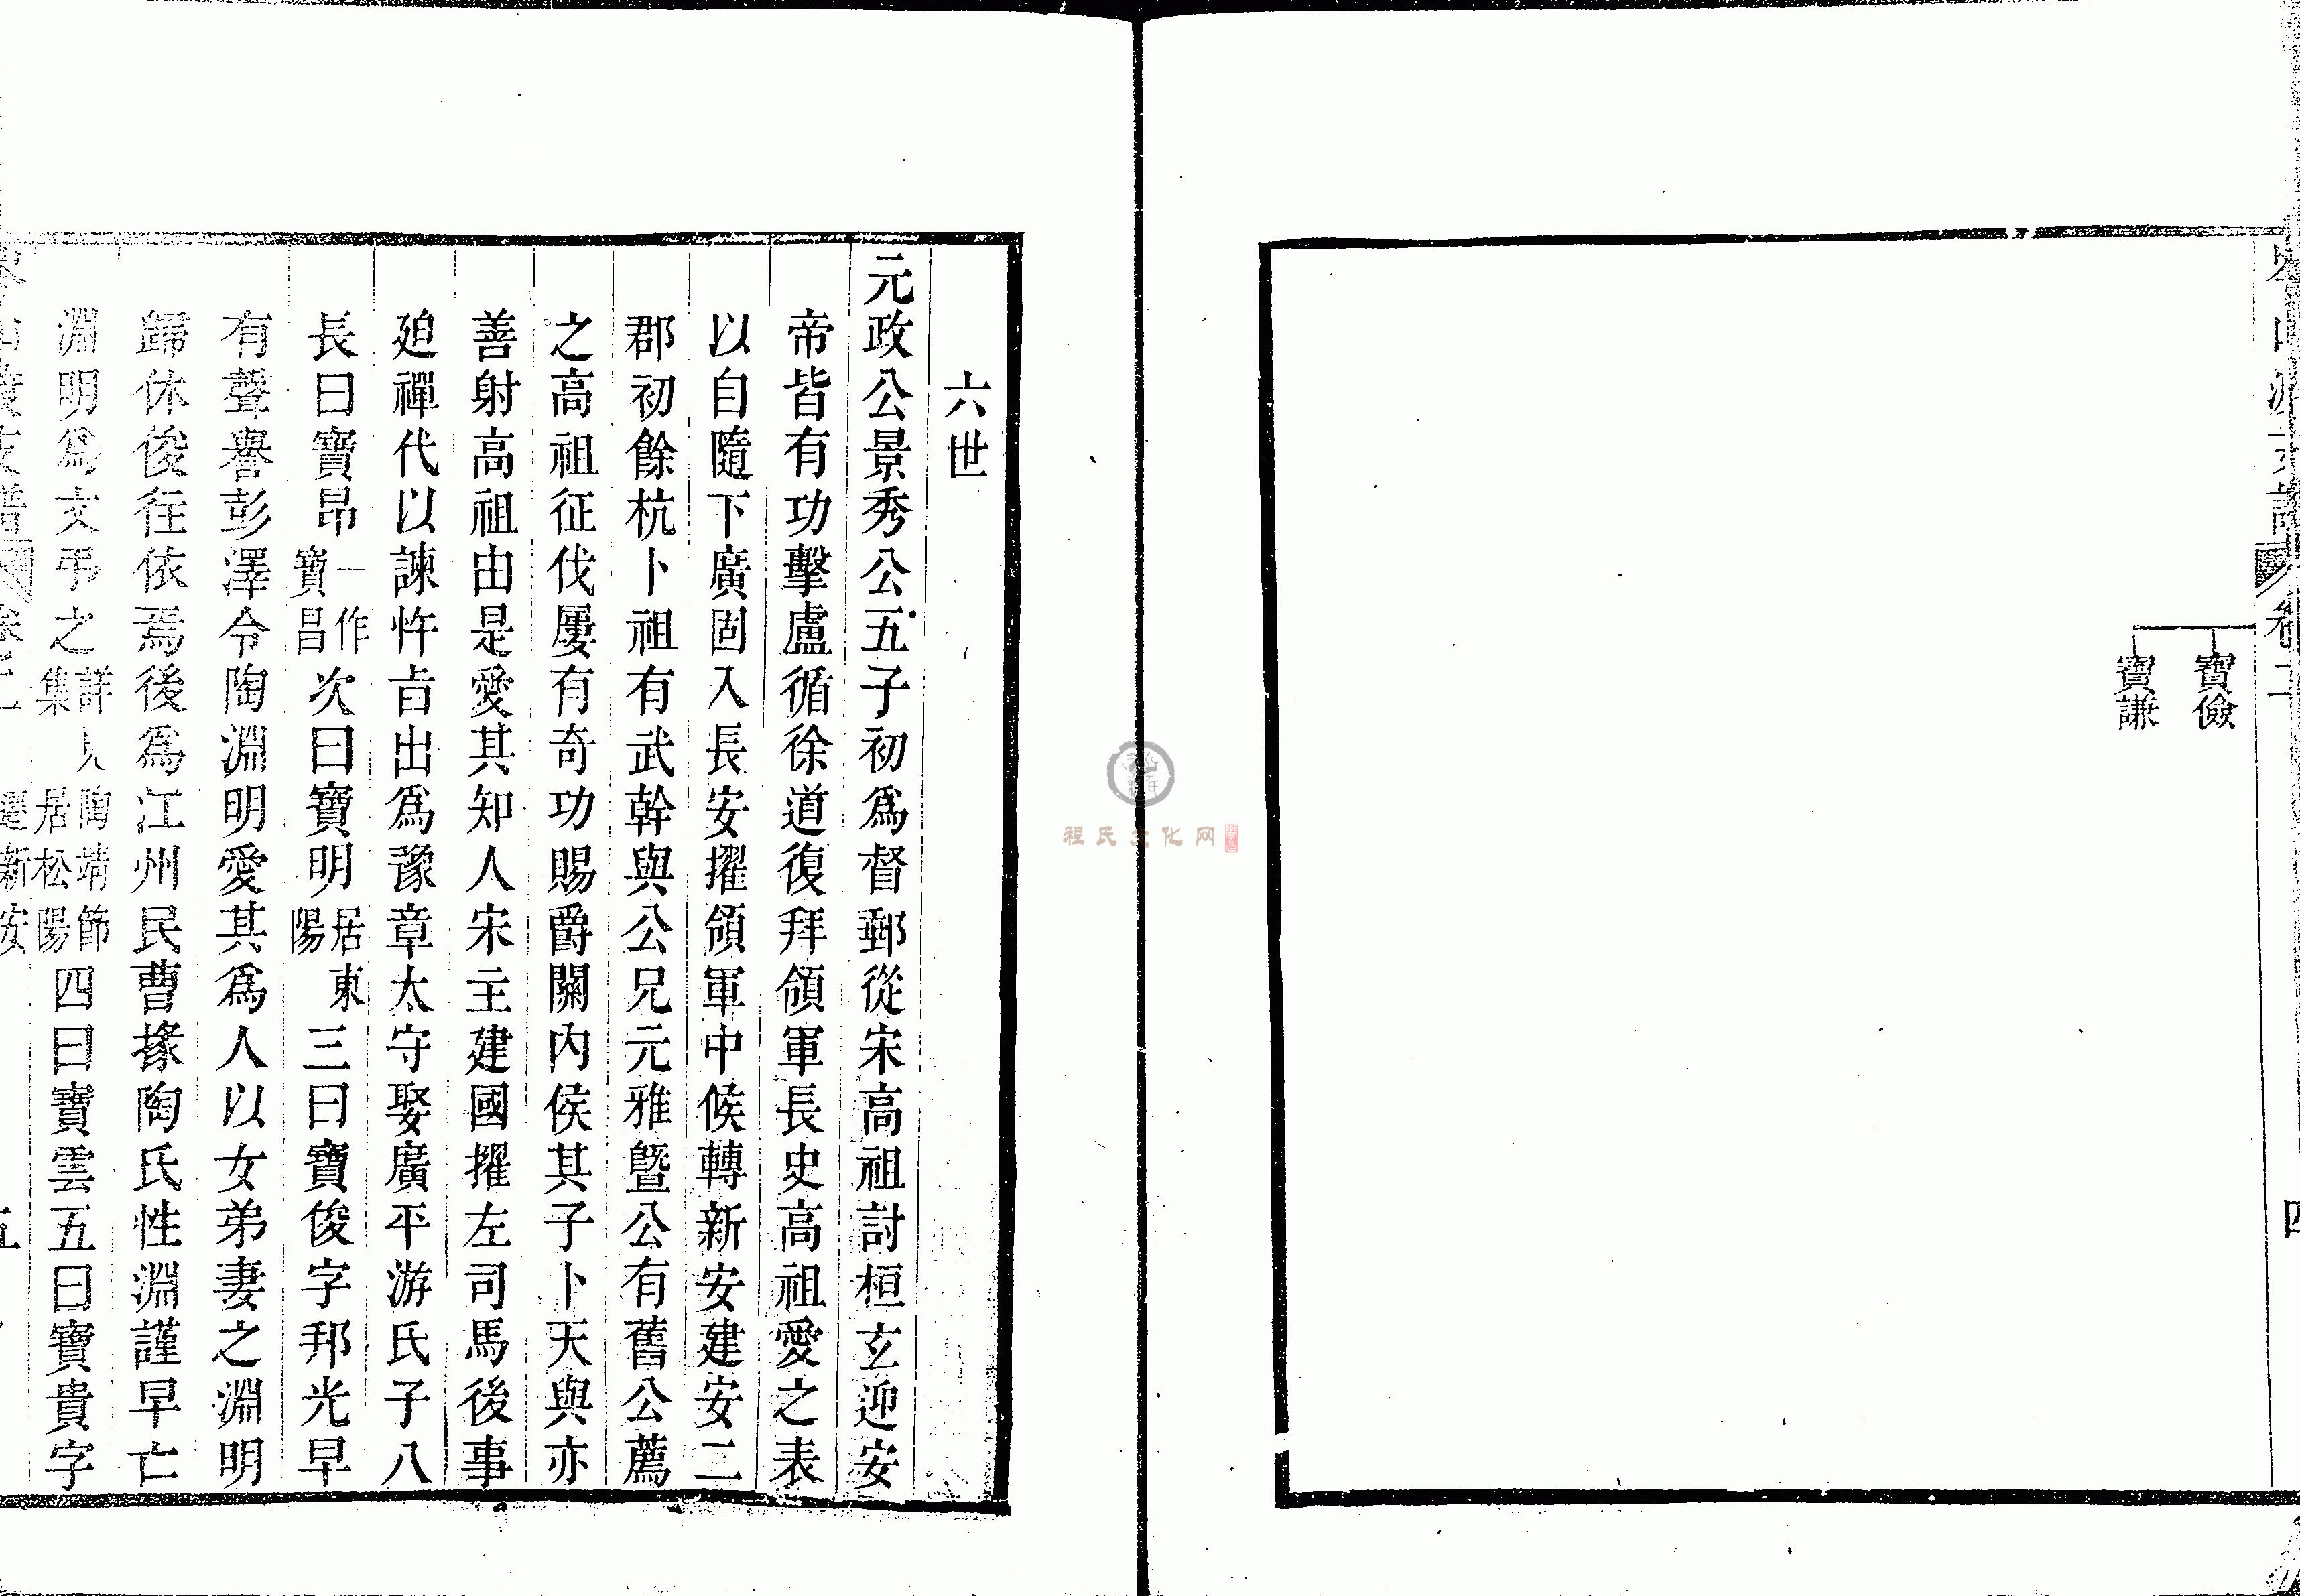 卷二
寶儉
寶謙
六世
元政公景秀公五子初爲督郵從宋高祖討桓玄迎安
帝皆有功擊盧循徐道復拜領軍長史高祖愛之表
以自隨下廣固入長安擢領軍中候轉新安建安二
郡初餘杭卜祖有武幹與公兄元雅曁公有舊公薦
之高祖征伐屢有奇功賜爵關内侯其子卜天與亦
善射高祖由是愛其知人宋主建國擢左司馬後事
廹禪代以諫忤旨出爲豫章太守娶廣平游氏子八
長曰寶昂一作寶昌次曰寶明居東陽三曰寶俊字邦光早
有聲譽彭澤令陶淵明愛其爲人以女弟妻之淵明
歸休俊往依焉後爲江州民曹掾陶氏性淵謹早亡
淵明爲文弔之詳見陶靖節集居松陽四曰寶雲遷新安五曰寶貴字
程氏文化网